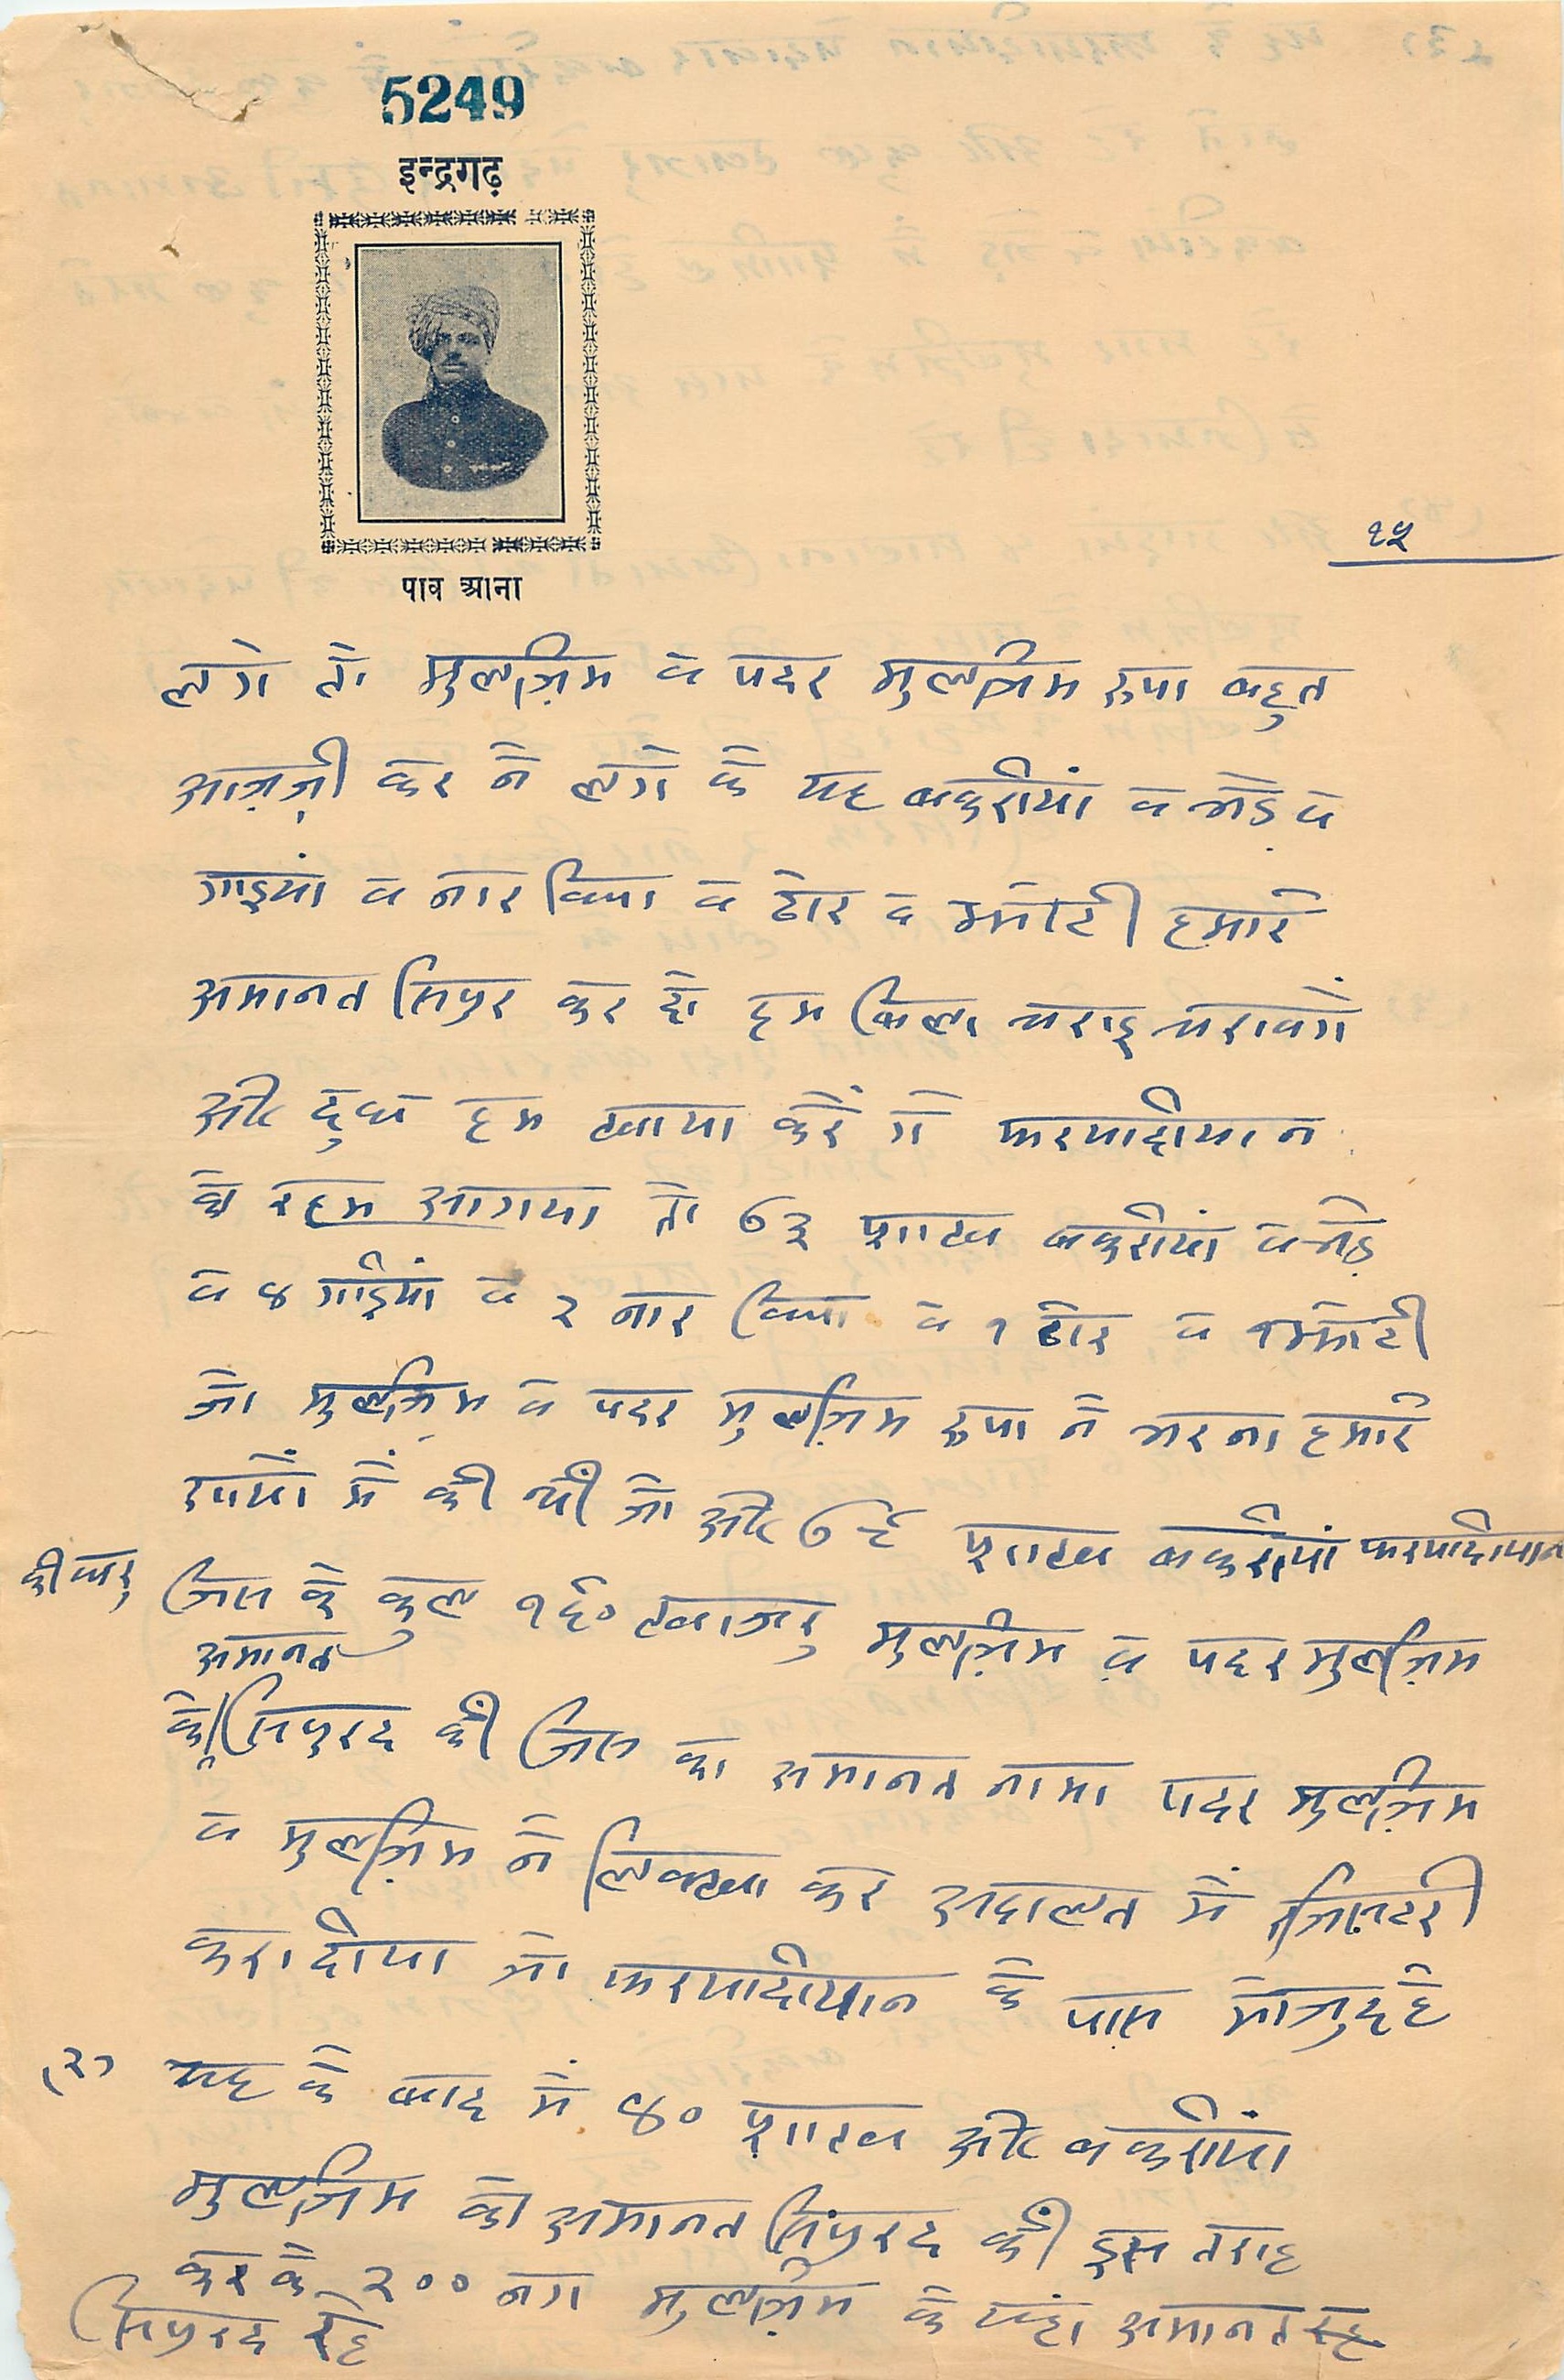 5249
इन्द्रगढ़
पाव आना
१५
लगे तो मुलज़िम व पदर मुलज़िम रुपा बहुत
आज़ज़ी कर ने लगे के यह बकरीयां व भेड़ व
गाइयां व नार किया व ढोर व झोटी हमारे
अमानत सिपुर कर दो हम बिला चराइ चरावेंगे
और दुध हम खाया करें गे फरयादीयान
को रहम आगया तो ७३ शाख बकरीयां व भेड़
व ४ गाइयां व २ नार किया व १ ढोर व १ झोटी
जो मुलज़िम व पदर मुलज़िम रुपा ने भरना हमारे
रुपयों में की थीं जो और ७९ शाख बकरीयां फरयादीयान
की बाइ जिस के कुल १६० रवाजइ मुलज़िम व पदर मुलज़िम
अमानत
को सिपुरद की जिस का अमानत नामा पदर मुलज़िम
व मुलज़िम ने लिखा कर अदालत में रजिसटरी
करा दीया जो फरयादीयान के पास मोजुद है
(२) यह के बाद में ४० शाख और बकरीयां
मुलज़िम को अमानत सिपुरद कीं इस तराह
कर के २०० नग मुलज़िम के यंहा अमानत रह
सिपुरद रहे